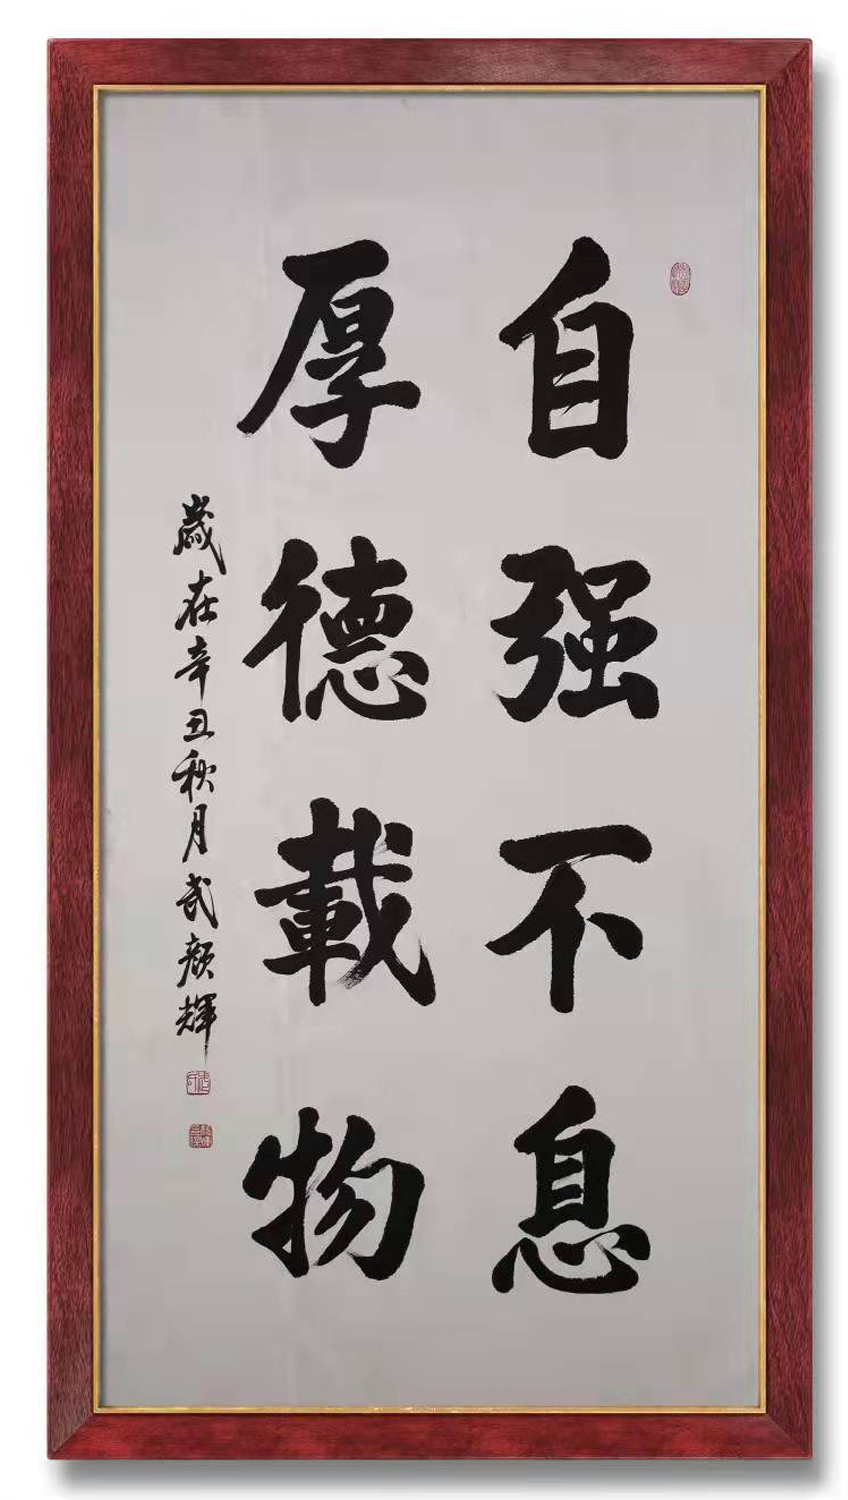 自强不息
厚德載物
歲在辛丑秋月武颜輝